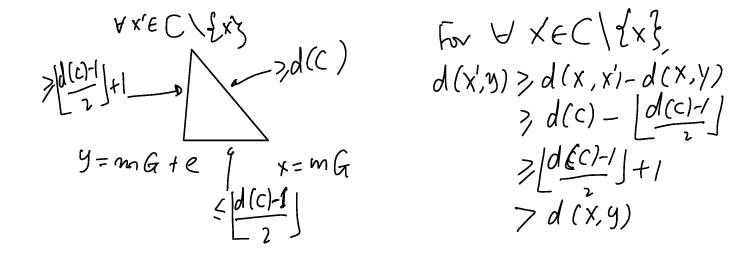 ∀ x'∈ C\{x}
≥⌊d(c)-1/2⌋+1
≥d(C)
y=mG+e
x=mG
≤⌊d(c)-1/2⌋
For ∀ x∈C\{x},
d(x',y) ≥ d(x,x')-d(x,y)
≥ d(c) - ⌊d(c)-1/2⌋
≥⌊d(c)-1/2⌋+1
> d(x,y)